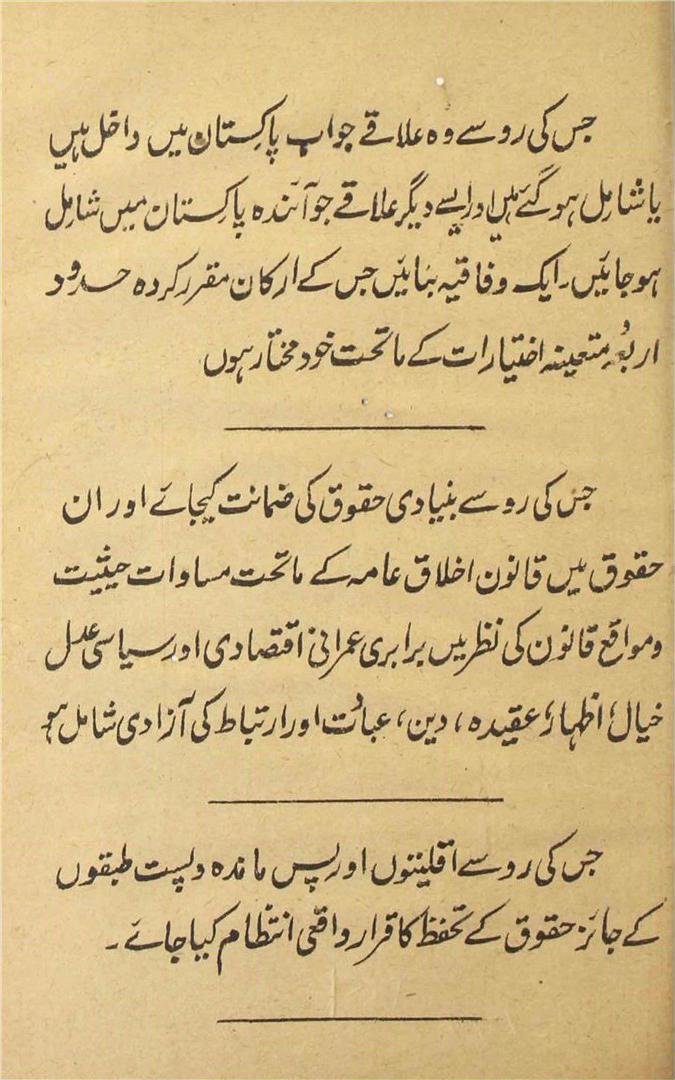 جس کی رو سے وہ علاقے جو اب پاکستان میں داخل ہیں
یا شامل ہو گئے ہیں اور ایسے دیگر علاقے جو آئندہ پاکستان میں شامل
ہو جائیں۔ ایک وفاقیہ بنائیں جس کے ارکان مقرر کردہ حدود
اربعہ متعینہ اختیارات کے ماتحت خود مختار ہوں
جس کی رو سے بنیادی حقوق کی ضمانت کیجائے اور ان
حقوق میں قانون اخلاق عامہ کے ماتحت مساوات حیثیت
و مواقع قانون کی نظر میں برابری عمرانی اقتصادی اور سیاسی عدل
خیال، اظہار، عقیدہ، دین، عبادت اور ارتباط کی آزادی شامل ہو
جس کی رو سے اقلیتوں اور پس ماندہ و پست طبقوں
کے جائز حقوق کے تحفظ کا قرار واقعی انتظام کیا جائے۔